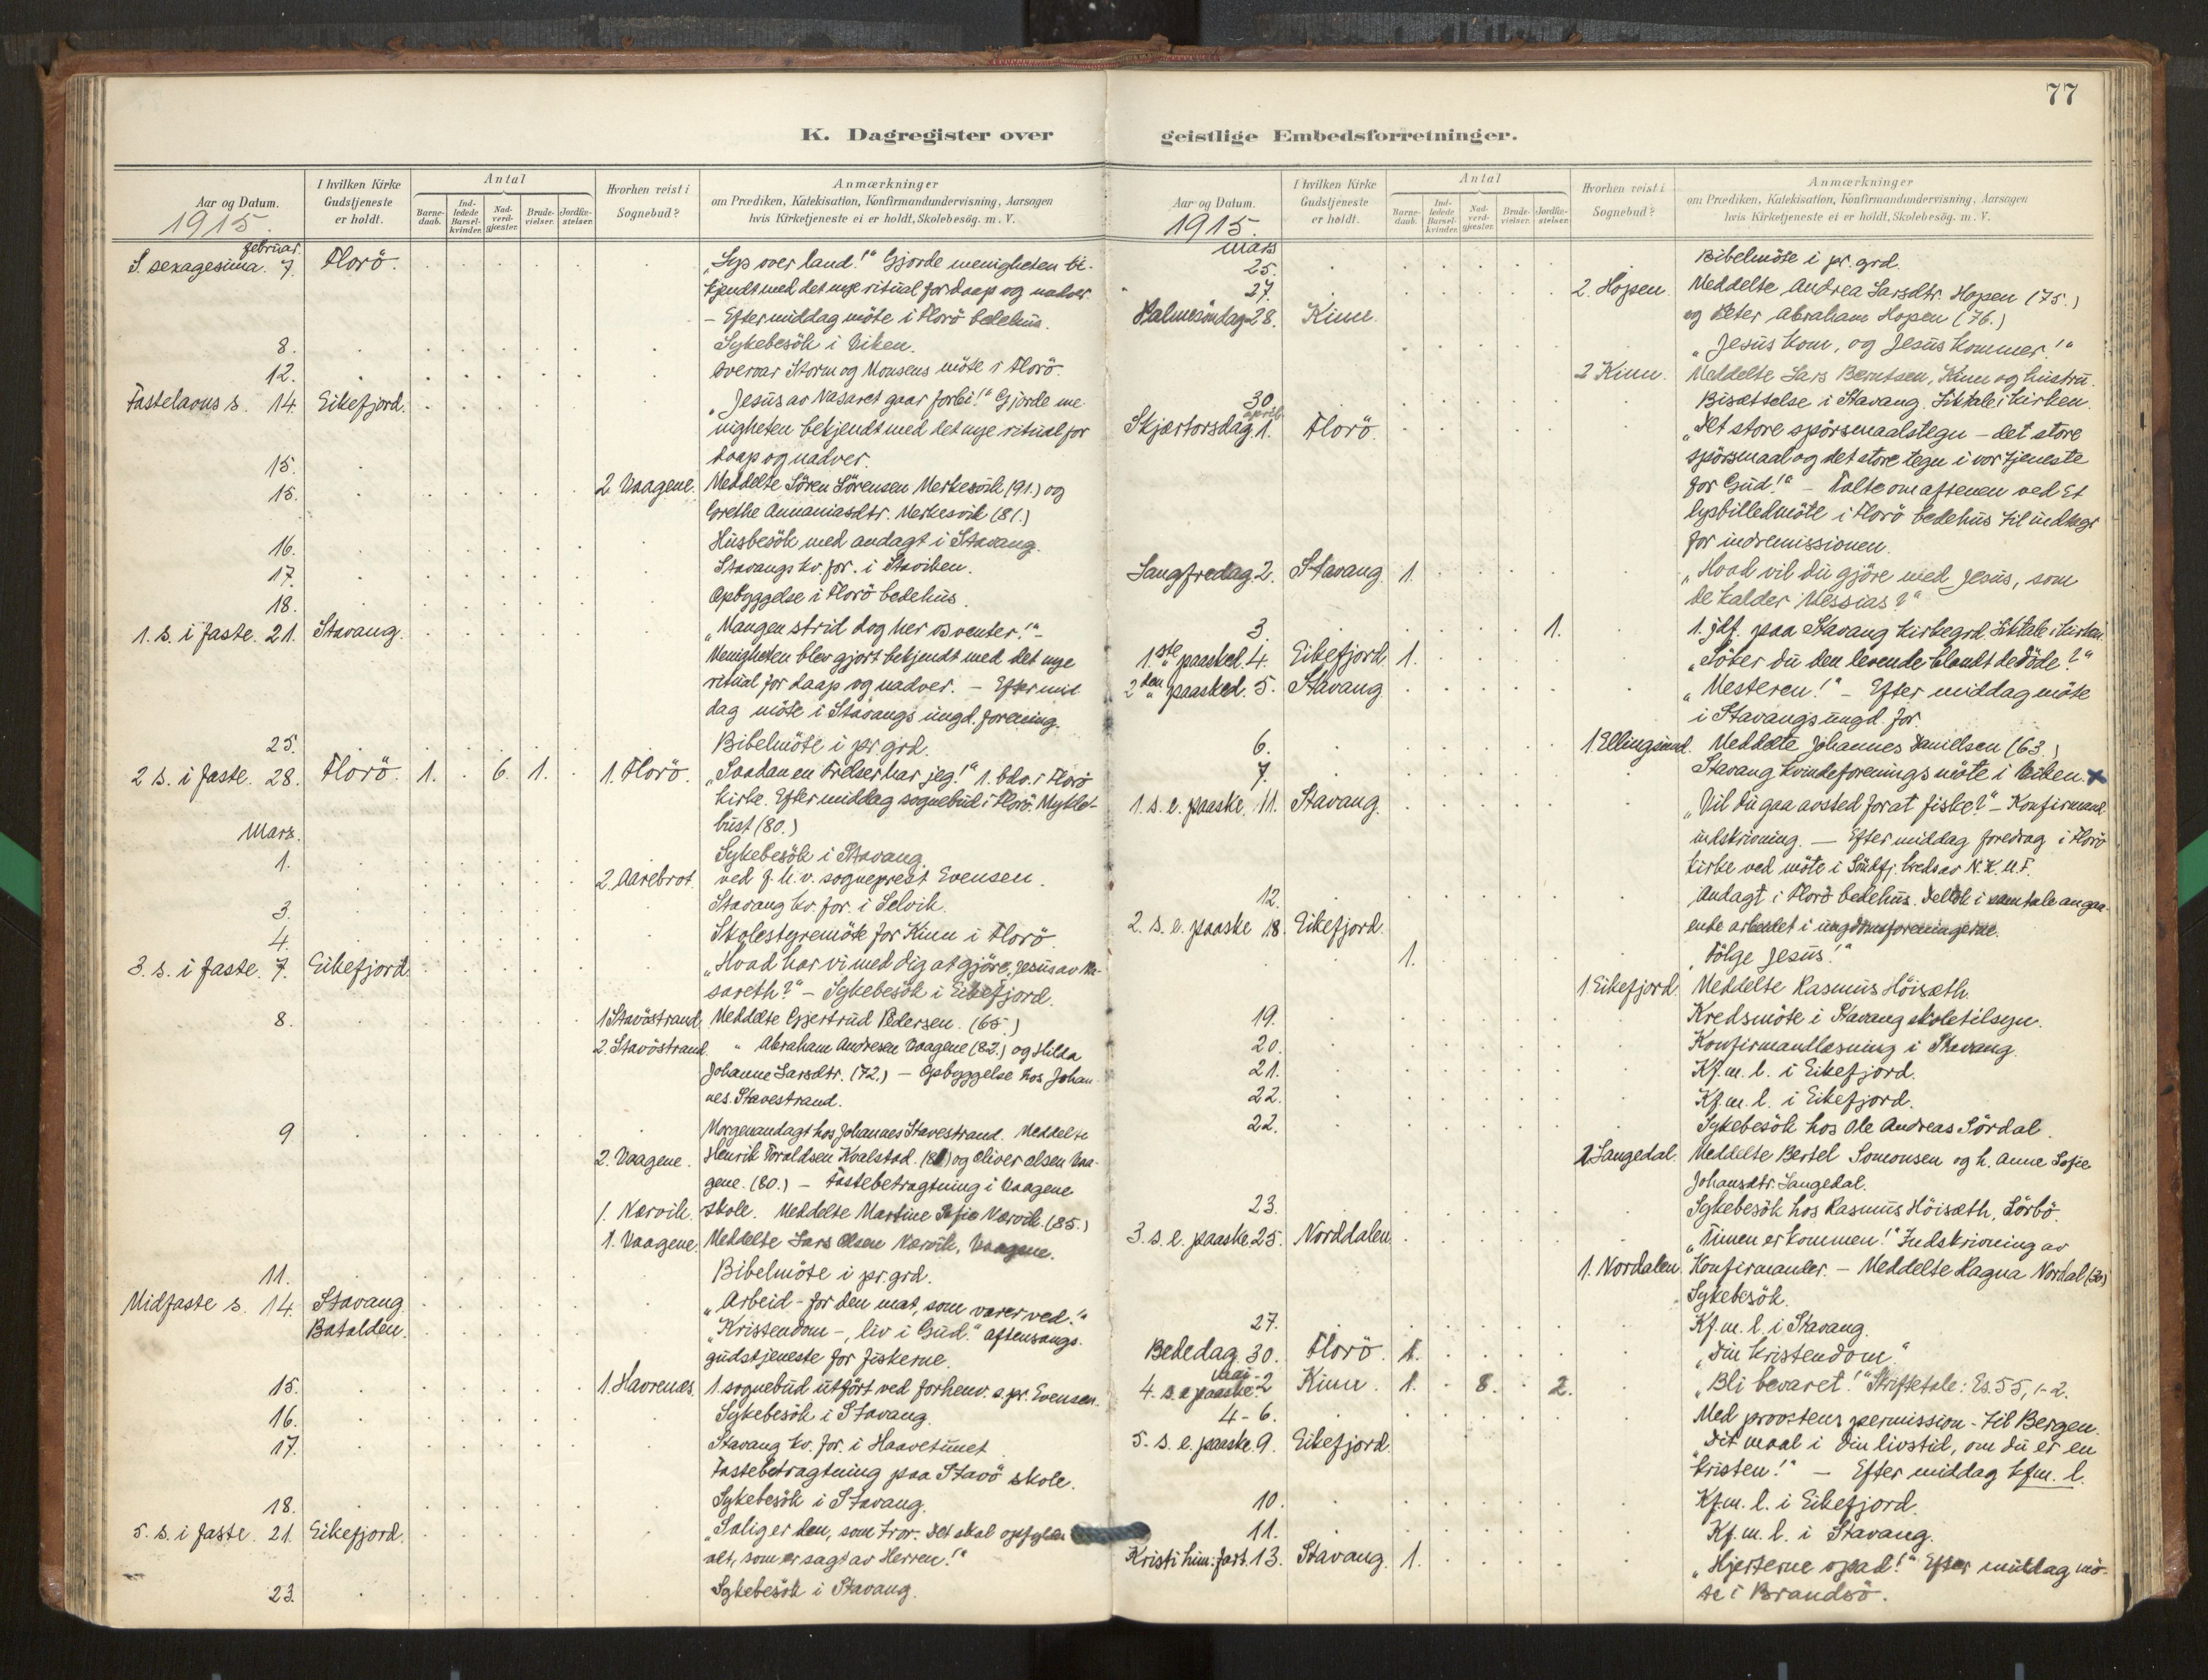 77
K. Dagregister over
Aar og Datum.
I hvilken Kirke Gudstjeneste er holdt.
Antal
Barne-daab.
Ind-ledede Barsel-kvinder.
Nad-verd-gjæster.
Brude-vielser.
Jordfæ-stelser.
Hvorhen reist i Sognebud?
Anmærkninger
om Prædiken, Katekisation, Konfirmandundervisning, Aarsagen
hvis Kirketjeneste ei er holdt, Skolebesög. m. V.
1915.
februar.
S. sexagesima. 7. Florö. „Lys over land!" Gjorde menigheten be-
kjendt med det nye ritual for daap og nadver.
– Eftermiddag möte i Florö bedehus.
8. Sykebesök i Viken.
12. Overvar Storm og Monsens möte i Florö.
Fastelavns s. 14 Eikefjord. „Jesus av Nasaret gaar forbi!" Gjorde me-
nigheten bekjendt med det nye ritual for
daap og nadver.
15.
15. 2. Vaagene. Meddelte Sören Sörensen Merkesvik (91.) og
Grethe Annaniasdtr. Merkesvik (81.)
16. Husbesök med andagt i Stavang.
17. Stavangs kv. for. i Staviken.
18. Opbyggelse i Florö bedehus.
1. s. i faste. 21. Stavang. „Mangen strid dog her os venter!"–
Menigheten blev gjort bekjendt med det nye
ritual for daap og nadver. – Eftermid
dag möte i Stavangs ungd. forening.
25. Bibelmöte i pr. grd.
2 s. i faste. 28. Florö. 1. 6. 1. 1. Florö. „Saadan en Frelser har jeg!" 1. bdv. i Florö
kirke. Eftermiddag sognebud i Florö. Myklé-
bust (80.)
Mars.
1. Sykebesök i Stavang.
2. Aarebrot. ved f. h. v. sogneprest Evensen.
3. Stavang kv. for. i Selvik.
4. Skolestyremöte for Kinn i Florö.
3. s. i faste. 7. Eikefjord. „Hvad har vi med dig at gjöre, Jesus av Na-
sareth?" – Sykebesök i Eikefjord.
8. 1 Stavöstrand. Meddelte Gjertrud Pedersen. (65.)
2. Stavöstrand. " Abraham Andresen Vaagene (82.) og Hilda
Johanne Larsdtr. (72.) – Opbyggelse hos Johan-
nes. Stavestrand.
9 Morgenandagt hos Johannes Stavestrand. Meddelte
2. Vaagene. Henrik Toraldsen Kvalstad. og Oliver Olsen Vaa-
gene. (80.) – Fastebetragtning i Vaagene
1. Nærvik. skole. Meddelte Martine Sofie Nærvik. (85.)
1. Vaagene. Meddelte Lars Olsen Nærvik, Vaagene.
11. Bibelmöte i pr. grd.
Midfaste s. 14 Stavang. „Arbeid – for den mat, som varer ved!"
Batalden. „Kristendom –, liv i Gud." Aftensangs-
gudstjeneste for fiskerne.
15. 1. Havrenes. 1. sognebud utfört ved forhenv. s. pr. Evensen.
16. Sykebesök i Stavang.
17. Stavang kv. for. i Haavetunet
Fastebetragtning paa Stavö skole.
18. Sykebesök i Stavang.
5. s. i faste. 21. Eikefjord. „Salig er den, som tror. Det skal opfyldes
alt, som er sagt av Herren!"
23. Sykebesök i Stavang.
geistlige Embedsforretninger.
Aar og Datum.
I hvilken Kirke Gudstjeneste er holdt.
Antal
Barne-daab.
Ind-ledede Barsel-kvinder.
Nad-verd-gjæster.
Brude-vielser.
Jordfæ-stelser.
Hvorhen reist i Sognebud?
Anmærkninger
om Prædiken, Katekisation, Konfirmandundervisning, Aarsagen
hvis Kirketjeneste ei er holdt, Skolebesög. m. V.
1915.
mars
25. Bibelmöte i pr. grd.
27. 2. Hopen. Meddelte Andrea Larsdtr. Hopen (75.)
og Peter Abraham Hopen (76.)
Palmesöndag 28. Kinn. „Jesus kom, og Jesus kommer!"
2 Kinn. Meddelte Lars Berntsen, Kinn og hustru.
30. Bisættelse i Stavang. Liktale i kirken.
april
Skjærtorsdag 1. Florö. „Det store spörsmaalstegn – det store
spörsmaal og det store tegn i vor tjeneste
for Gud!" – Talte om aftenen ved et
lysbilledmöte i Florö bedehus til indtægt
for indremissionen.
Langfredag 2. Stavang 1. „Hvad vil du gjöre med Jesus, som
de kalder Messias?"
3. 1. 1. jdf. paa Stavang kirkegrd. Liktale i kirken.
1.ste paasked. 4. Eikefjord. 1. „Söker du den levende blandt de döde?"
2den paasked. 5. Stavang „Mesteren!" – Efter middag möte
i Stavangs ungd. for.
6. 1. Ellingsund. Meddelte Johannes Danielsen (63.)
7. Stavang kvindeforenings möte i Viken. x
1. s. e. paaske. 11. Stavang. „Vil du gaa avsted for at fiske?" – Konfirmand
indskrivning. – Efter middag foredrag i Florö
kirke ved möte i Söndfj. kreds av N. K. U. F.
12. Andagt i Florö bedehus. Deltok i samtale angaa-
ende arbeidet i ungdomsforeningerne.
2. s. e. paaske 18. Eikefjord. 1. „Fölge Jesus!"
1 Eikefjord. Meddelte Rasmus Höisæth.
19. Kredsmöte i Stavang skoletilsyn.
20. Konfirmandlæsning i Stavang.
21. Kf. m. l. i Eikefjord.
22. Kf. m. l. i Eikefjord.
22. Sykebesök hos Ole Andreas Sördal.
2 Langedal. Meddelte Bertel Somonsen og h. Anne Sofie
Johansdtr. Langedal.
23. Sykebesök hos Rasmus Höisæth, Sörbö.
3. s. e. paaske 25. Norddalen „Timen er kommen!" Indskrivning av
1. Nordalen. Konfirmanter. – Meddelte Ragna Nordal (30)
Sykebesök.
27. Kf. m. l. i Stavang.
Bededag 30. Florö. 1. „Din kristendom."
mai
4. s. e. paaske 2 Kinn. 1. 8. 2. „Bli bevaret!" Skriftetale: Es. 55, 1–2.
4–6. Med provstens permission – til Bergen.
5. s. e. paaske 9. Eikefjord. „Dit maal i din livstid, om du er en
kristen!" – Efter middag kfm. l.
10. Kf. m. l. i Eikefjord.
11. Kf. m. l. i Stavang.
Kristi him: fart. 13. Stavang. 1. „Hjerterne opad!" Efter middag mö-
te i Brandsö.